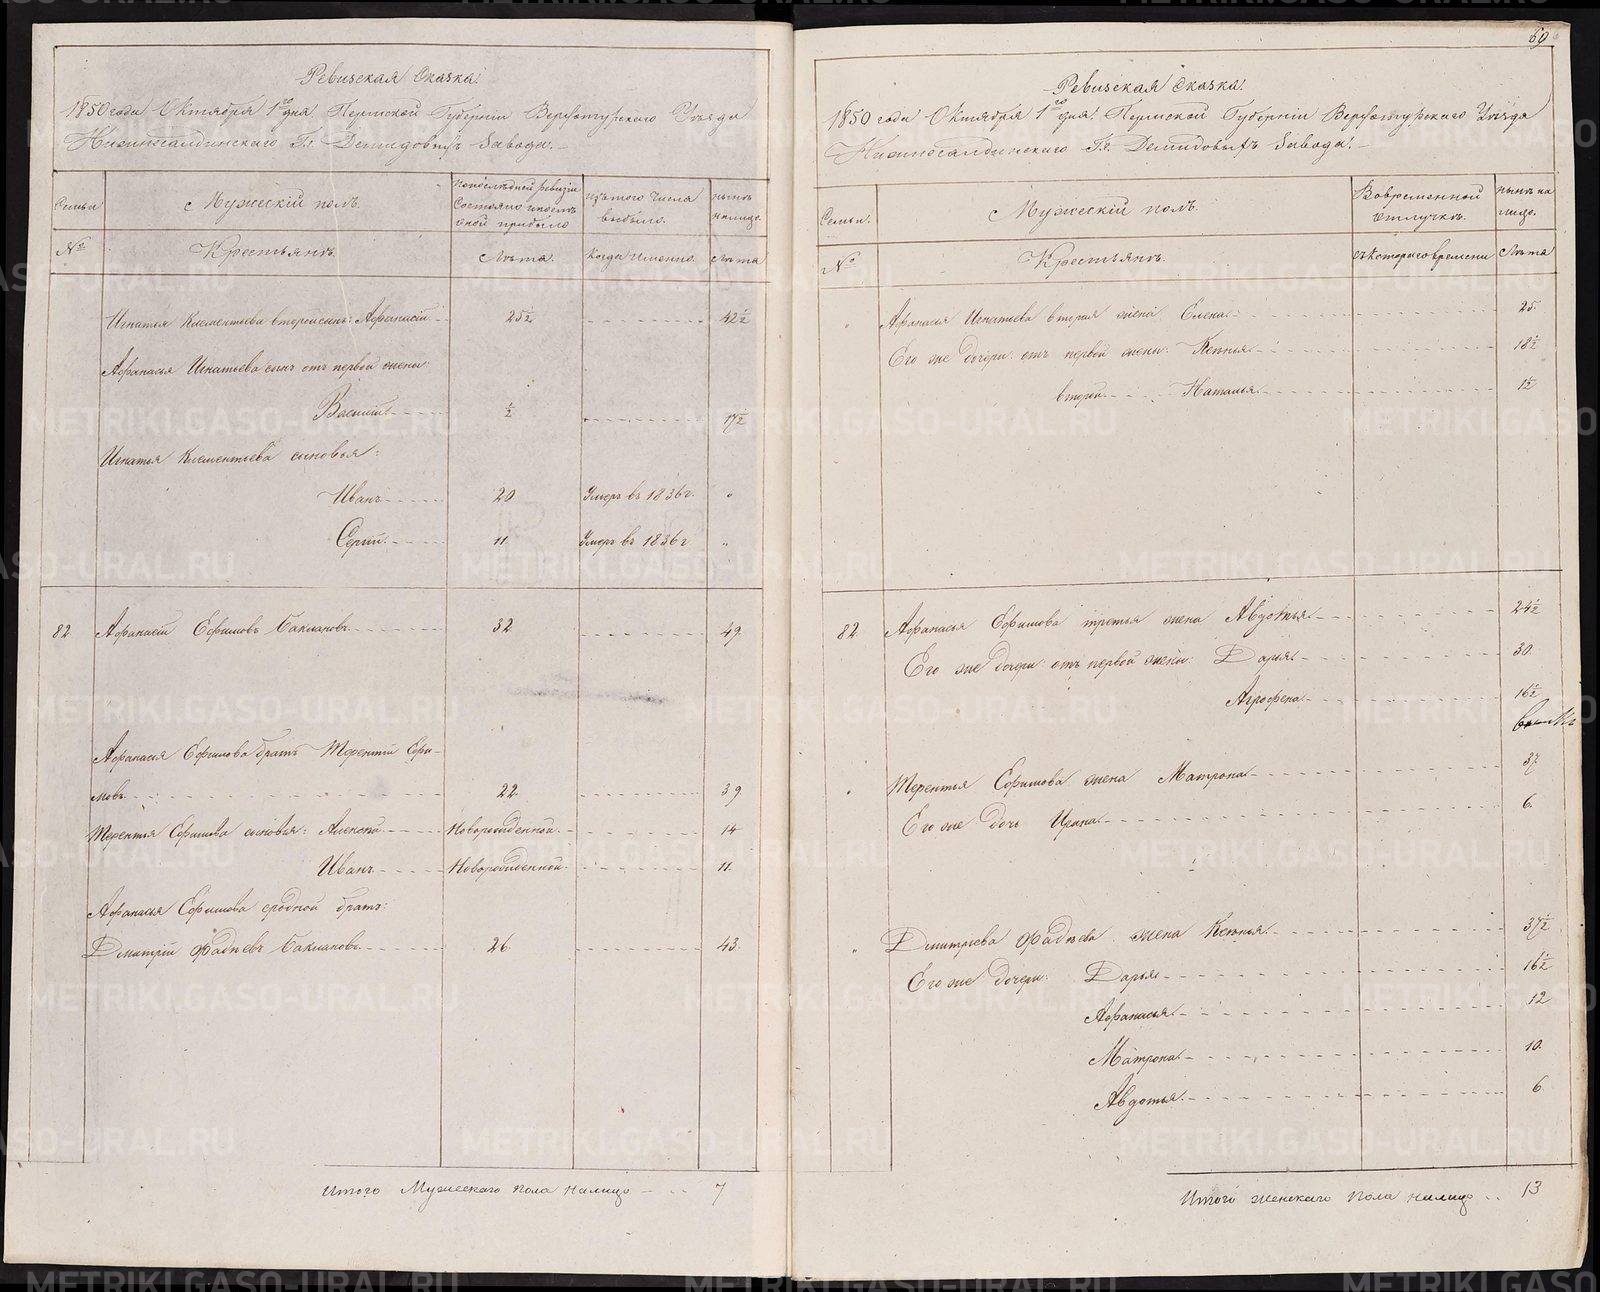 Ревизская Сказка.
1850 года Октября 1го дня Пермской Губернии Верхотурскаго Уезда
Нижнесалдинскаго Гг. Демидовыхъ Завода.
Семьи
Мужескій полъ.
По последней ревизіи состояло и после оной прибыло
Изъ того числа выбыло.
Ныне на лицо.
№
Крестьянъ.
Лета.
Когда именно.
Лета
Игнатья Клементьева второй сынъ: Афанасій 25½ 42½
Афанасья Игнатьева сынъ отъ первой жены:
Василій ½ 17½
Игнатья Клементьева сыновья:
Иванъ 20 Умеръ въ 1836 г. "
Сергий 11. Умеръ въ 1836 г "
82 Афанасій Ефимовъ Бакмановъ 32 49.
Афанасья Ефимова братъ Терентій Ефи-
мовъ 22 39
Терентья Ефимова сыновья: Алексей Новорожденной 14
Иванъ Новорожденной 11.
Афанасья Ефимова сродной братъ:
Дмитрій Фадеевъ Бакмановъ 26 43.
Итого Мужескаго пола налицо 7
69
Ревизская Сказка.
1850 года Октября 1го дня. Пермской Губерніи Верхотурскаго Уезда
Нижнесалдинскаго Гг. Демидовыхъ Завода.
Семьи.
Мужескій полъ.
Во временной отлучкъ.
Ныне на лицо.
№
Крестьянъ.
съ котораго времени
Лета
" Афанасья Игнатьева вторая жена Елена 25.
Его же дочери: отъ первой жены: Ксенья 18½
второй Наталья 1½
82. Афанасья Ефимова третья жена Авдотья 24½
Его же дочери: отъ первой жены: Дарья 30.
Агрофена 16½
" Терентья Ефимова жена Матрона 37
Его же дочь Ирина 6.
" Дмитріева Фадеева жена Ксенья 37½
Его же дочери: Дарья 16½
Афанасья 12
Матрона 10.
Авдотья 6
Итого женскаго пола налицо 13
METRIKI.GASO-URAL.RU